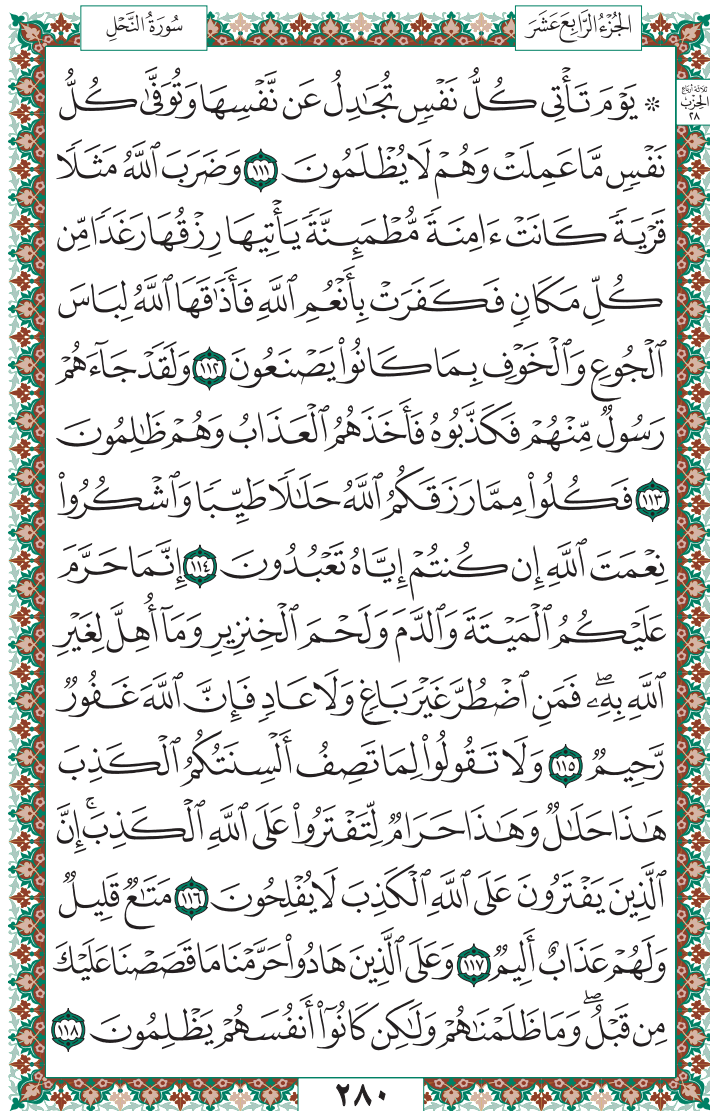 الجُزْءُ الرَّابِعَ عَشَرَ
سُورَةُ النَّحْلِ
ثلاثة أرباع
الحِزْب
٢٨
۞ يَوْمَ تَأْتِي كُلُّ نَفْسٖ تُجَٰدِلُ عَن نَّفْسِهَا وَتُوَفَّىٰ كُلُّ
نَفْسٖ مَّا عَمِلَتْ وَهُمْ لَا يُظْلَمُونَ ١١١ وَضَرَبَ ٱللَّهُ مَثَلٗا
قَرْيَةٗ كَانَتْ ءَامِنَةٗ مُّطْمَئِنَّةٗ يَأْتِيهَا رِزْقُهَا رَغَدٗا مِّن
كُلِّ مَكَانٖ فَكَفَرَتْ بِأَنْعُمِ ٱللَّهِ فَأَذَٰقَهَا ٱللَّهُ لِبَاسَ
ٱلْجُوعِ وَٱلْخَوْفِ بِمَا كَانُوا۟ يَصْنَعُونَ ١١٢ وَلَقَدْ جَآءَهُمْ
رَسُولٞ مِّنْهُمْ فَكَذَّبُوهُ فَأَخَذَهُمُ ٱلْعَذَابُ وَهُمْ ظَٰلِمُونَ
١١٣ فَكُلُوا۟ مِمَّا رَزَقَكُمُ ٱللَّهُ حَلَٰلٗا طَيِّبٗا وَٱشْكُرُوا۟
نِعْمَتَ ٱللَّهِ إِن كُنتُمْ إِيَّاهُ تَعْبُدُونَ ١١٤ إِنَّمَا حَرَّمَ
عَلَيْكُمُ ٱلْمَيْتَةَ وَٱلدَّمَ وَلَحْمَ ٱلْخِنزِيرِ وَمَآ أُهِلَّ لِغَيْرِ
ٱللَّهِ بِهِۦۖ فَمَنِ ٱضْطُرَّ غَيْرَ بَاغٖ وَلَا عَادٖ فَإِنَّ ٱللَّهَ غَفُورٞ
رَّحِيمٞ ١١٥ وَلَا تَقُولُوا۟ لِمَا تَصِفُ أَلْسِنَتُكُمُ ٱلْكَذِبَ
هَٰذَا حَلَٰلٞ وَهَٰذَا حَرَامٞ لِّتَفْتَرُوا۟ عَلَى ٱللَّهِ ٱلْكَذِبَۚ إِنَّ
ٱلَّذِينَ يَفْتَرُونَ عَلَى ٱللَّهِ ٱلْكَذِبَ لَا يُفْلِحُونَ ١١٦ مَتَٰعٞ قَلِيلٞ
وَلَهُمْ عَذَابٌ أَلِيمٞ ١١٧ وَعَلَى ٱلَّذِينَ هَادُوا۟ حَرَّمْنَا مَا قَصَصْنَا عَلَيْكَ
مِن قَبْلُۖ وَمَا ظَلَمْنَٰهُمْ وَلَٰكِن كَانُوٓا۟ أَنفُسَهُمْ يَظْلِمُونَ ١١٨
٢٨٠